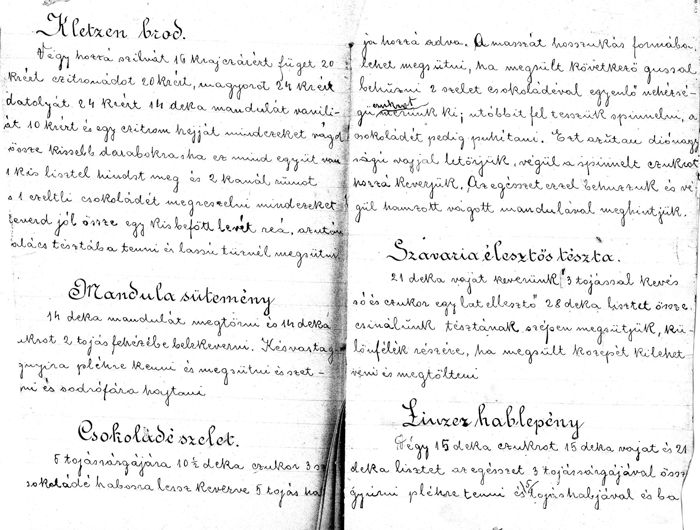 Kletzen brod.
Végy hozzá szilvát 16 krajczárért fügét 20
krért czitronádot 20 krért, magyorot 24 krért
datolyát 24 krért 14 deka mandulát vanili-
át 10 krért és egy czitrom héjját mindezeket vagd
össze kissebb darabokra, ha ez mind együtt van
1 kis lisztel hindst meg és 2 kanál rumot
s 1 czeltli csokoládét megreszelni mindezeket
keverd jól össze egy kis befőtt levét reá, azután
kalács tésztába tenni és lassú tűznél megsütni
Mandula sütemény
14 deka mandulát megtörni és 14 deka
czukrot 2 tojás fehérébe belekeverni. Késvastag-
nyira plékre kenni és megsütni és szet-
ni és sodrófára hajtani
Csokoládé szelet.
5 tojássárgájára 10½ deka czukor 3 sz
csokoládé habosra lessz keverve 5 tojás ha
ja hozzá adva. A masszát hosszukás formába
lehet megsütni, ha megsült következő gussal
behúzni 2 szelet csokoládéval egyenlő nehézsé-
gü czukrot ki, utóbbit fel tesszük spinnelni, a
csokoládét pedig puhitani. Ezt azután diónagy
ságú vajjal letörjük, végül a spinnelt czukrot
hozzá keverjük. Az egésset ezzel behuzzuk és vé
gül hamzott vágott mandulával meghintjük.
Szávária élesztős tészta.
21 deka vajat keverünk 3 tojással kevés
só és czukor egy lat ellesztő 28 deka lisztet össze
csinálunk tésztának szépen megsütjük, kü-
lönfélék részére, ha megsült közepét kilehet
venni és megtölteni
Linzer hablepény
Végy 15 deka czukrot 15 deka vajat és 21
deka lisztet az egésset 3 tojássárgájával össz
gyúrni plékre tenni és 5 tojáshabjával és ba